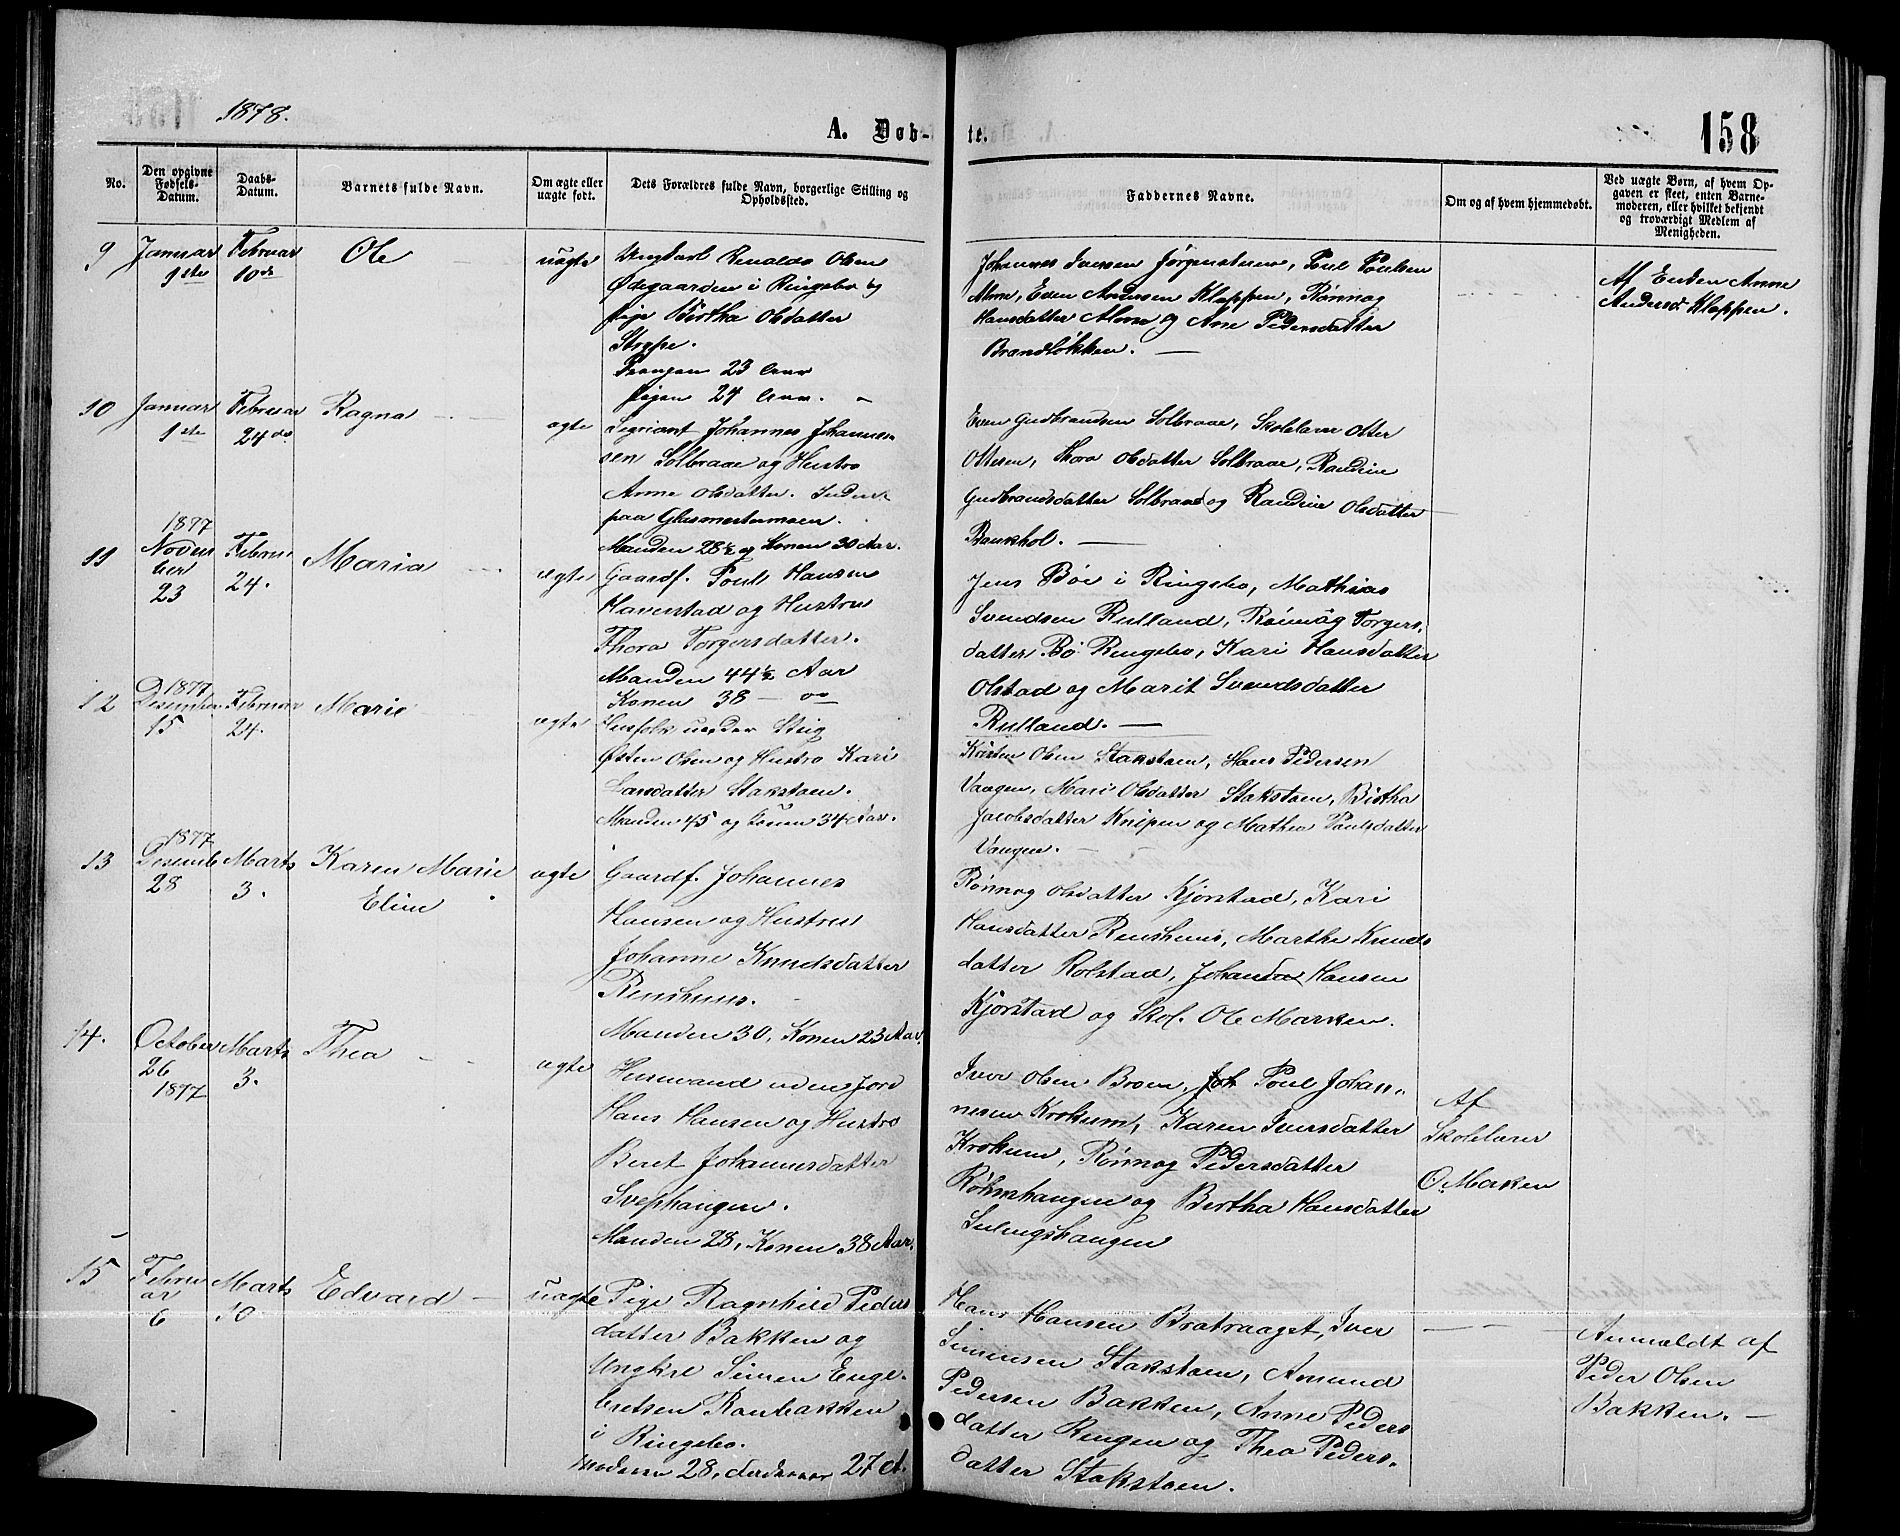 1878.
A. Døb-
te.
158
No.
Den opgivne Fødsels-Datum.
Daabs-Datum.
Barnets fulde Navn.
Om ægte eller uægte født.
Dets Forældres fulde Navn, borgerlige Stilling og Opholdssted.
Faddernes Navne.
Om og af hvem hjemmedøbt.
Ved uægte Børn, af hvem Op-
gaven er skeet, enten Barne-
moderen, eller hvilket bekjendt
og troværdigt Medlem af
Menigheden.
9
Januar
1ste
Februar
10de
Ole
uægte
Ungkarl Olsen
Ødegaarden i Ringebo og
Pige Birtha Olsdatter
Strype.
23 Aar
Pigen 24 Aar.
Johannes Iversen Jørgenstuen, Poul Poulsen
Alme, Even Andersen Kleppen, Rønnog
Hansdatter Alme og Ane Pedersdatter
Brandløkken.
Af Enken Anne
Andersd. Kleppen.
10
Januar
1ste
Februar
24de
Ragna
ægte
Johannes Johannes-
sen Solbraae og Hustro
Anne Olsdatter.
paa Glasmestermoen.
Manden 28½ og Konen 30 Aar.
Even Gudbrandsen Solbraae, Skolelærer Otter
Ottesen, Thora Olsdatter Solbraae, Randine
Gudbrandsdatter Solbraae og Randine Olsdatter
11
1877
Novem
ber
23
Februar
24.
Maria
ægte
Gaardf. Poul Hansen
Haverstad og Hustru
Thora Torgersdatter.
Manden 44½ Aar
Konen 38
Jens Bøe i Ringebo, Mathias
Svendsen Rulland, Rønnog Torgers-
datter Bø Ringebo, Kari Hansdatter
Olstad og Marit Svendsdatter
Rulland.
12
1877
Desember
15
Februar
24.
Marie
ægte
Husfolk under Stig
Østen Olsen og Hustro Kari
Larsdatter Stakstoen.
Manden 45 og Konen 34 Aar.
Olsen Stakstoen, Hans Pedersen
Vangen, Mari Olsdatter Stakstoen, Birtha
Jacobsdatter Knipen og Mathea Poulsdatter
Vangen.
13
1877
Desemb
28
Marts
3.
Karen Marie
Eline
ægte
Gaardf. Johannes
Hansen og Hustru
Johanne Knudsdatter
Renshuus.
Manden 30, Konen 23 Aar.
Rønnog Olsdatter Kjørstad, Kari
Hansdatter Renshuus, Marthe Knuds
datter Rolstad, Hansen
Kjørstad og Skol. Ole Marken.
14.
October
26
1877
Marts
3.
Thea
ægte
Husmand uden Jord
Hans Hansen og Hustro
Beret Johannesdatter
Svephaugen.
Manden 28, Konen 38 Aar.
Iver Olsen Broen, Poul Johan-
nesen Krokum, Karen Iversdatter
Krokum, Rønnog Pedersdatter
og Bertha Hansdatter
Af
Skolelærer
O. Marken
15
Febru
ar
6
Marts
10
Edvard
uægte
Pige Ragnhild Peders
datter Bakken og
Ungkrl Simen Enge-
bretsen Ranbakken
i Ringebo.
Moderen 28, 27 A.
Hans Hansen Bratraaget, Iver
Simensen Stakstoen, Amund
Pedersen Bakken, Anne Peders
datter Ringen og Thea Peders-
datter Stakstoen.
Anmeldt af
Peder Olsen
Bakken.